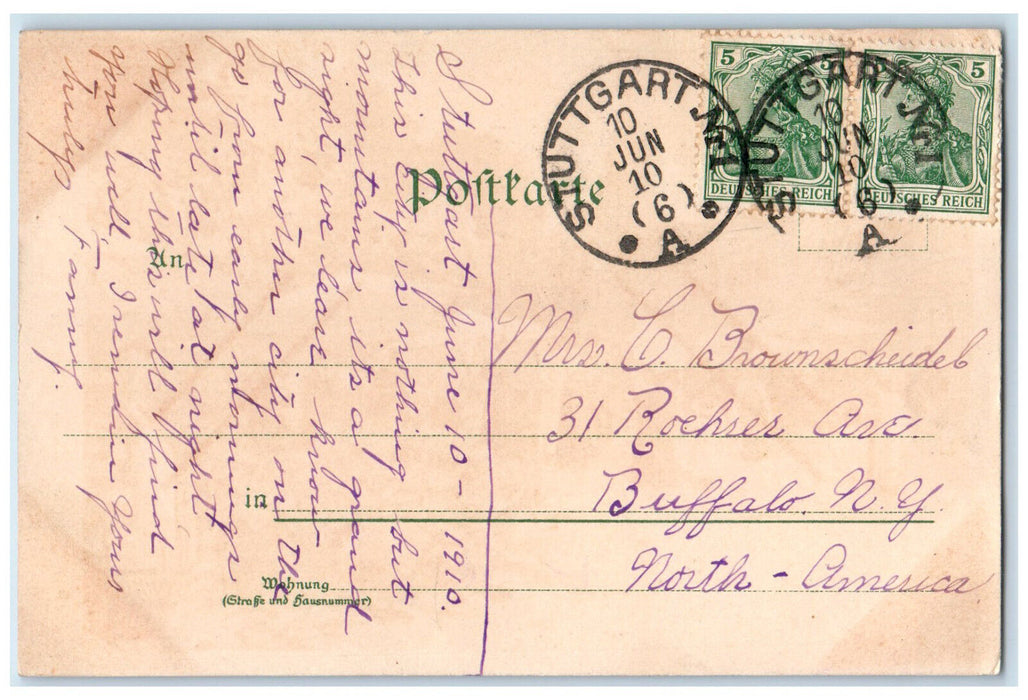 Stuttgart June 10 - 1910.
This City is nothing but
mountains its a grand
sight, we leave know
for another city on the
go from early mornings
until late at night
Hoping this will find
you well, I remain Yours
Truly
Fanny.
Postkarte
An
in
Wohnung
(Straße und Hausnummer)
5 5
DEUTSCHES REICH
5
DEUTSCHES REICH
STUTTGART No 1
10
JUN
10
(6)
A
STUTTGART No 1
10
JUN
10
(6)
A
Mrs. C. Brownscheidel
31 Roehrer Ave.
Buffalo. N. Y.
North - America